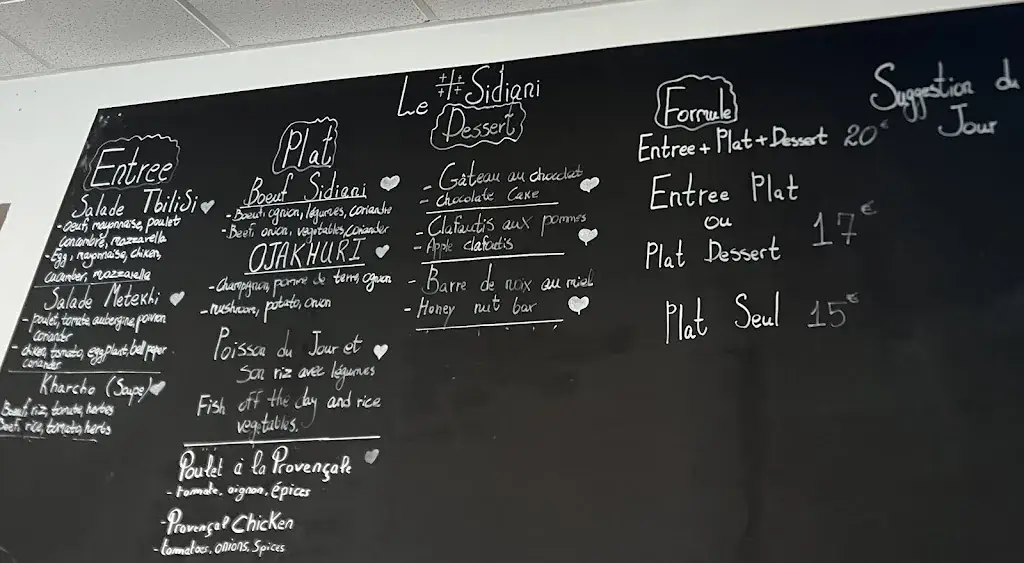 Le Sidiani
Entree
Salade Tbilisi
- Oeuf, mayonnaise, poulet
concombre, mozzarella
- Egg, mayonnaise, chiken,
cucamber, mozzarella
Salade Metekhi
- Poulet, tomate, aubergine, poivron
coriander
- chiken, tomato, eggplant, bell peper
coriander
Kharcho (Soupe)
Boeuf, riz, tomate, herbes
Beef, rice, tomato, herbs
Plat
Boeuf Sidiani
- Boeuf, ognon, légumes, coriandre
- Beef, onion, vegitables, coriander
OJAKHURI
- Champignon, pomme de terre, ognon
- mushroom, potato, onion
Poisson du Jour et
son riz avec légumes
Fish off the day and rice
vegitables.
Poulet à la Provençale
- tomate, oignon, épices
- Provençal Chicken
- tomatoes, onions, spices
Dessert
- Gâteau au chocolat
- Chocolate Cake
- Clafoutis aux pommes
- Apple clafoutis
- Barre de noix au miel
- Honey nut bar
Formule
Entree + Plat + Dessert 20€
Entree Plat
ou
Plat Dessert
17€
Plat Seul 15€
Suggestion du
Jour